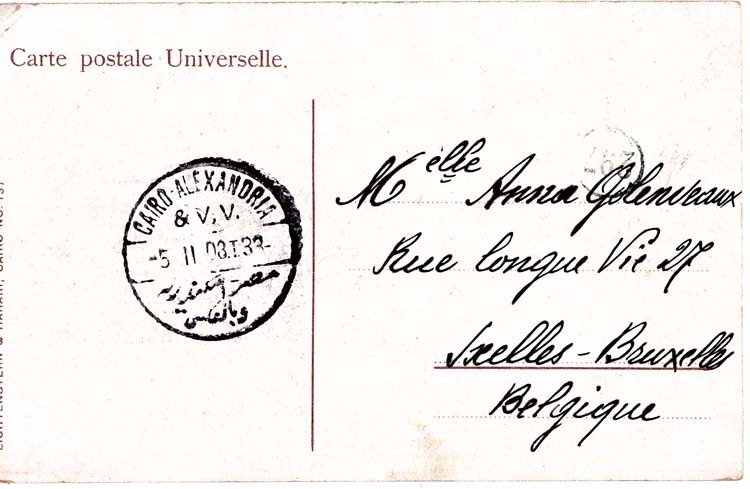 Carte postale Universelle.
CAIRO-ALEXANDRIA
& V.V.
-5 II 08.T.33-
مصر اسكندرية
وبالعكس
Melle Anna Golenveaux
Rue longue Vie 27
Ixelles-Bruxelles
Belgique
CAIRO NO. 137